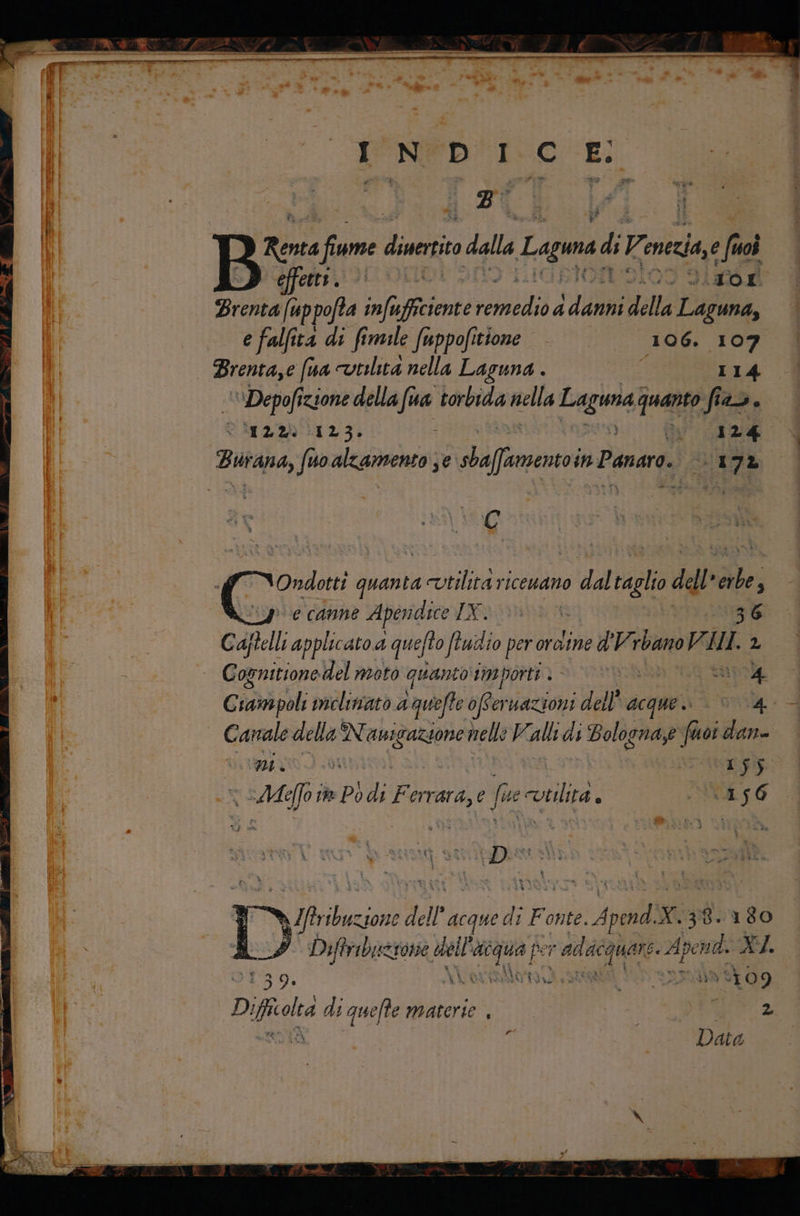 INDICE.
B
BRenta fiume diuertito dalla Laguna di Venezia, e ſuoi
effetti. 101
Brenta ſuppoſta inſufficiente remedio a danni della Laguna,
e falſità di ſimile ſuppoſitione 106. 107
Brenta, e ſua vtilità nella Laguna. 114
Depoſizione della ſua torbida nella Laguna quanto ſia.
122. 123. 124
Burana, ſuo alzamento, e sbaſſamento in Panaro. 172
C
COndotti quanta vtilità riceuano dal taglio dell'erbe,
e canne Apendice IX. 36
Caſtelli applicato a queſto ſtudio per ordine d'Vrbano VIII. 2
Cognitione del moto quanto importi. 4
Ciampoli inclinato a queſte oſſeruazioni dell' acque. 4
Canale della Nauigazione nelle Valli di Bologna, e ſuoi dan-
ni. 155
Meſſo in Pò di Ferrara, e ſue vtilità. 156
D
DIſtribuzione dell' acque di Fonte. Apend. X. 38. 180
Diſtribuzione dell'acqua per adacquare. Apend. XI.
39. 109
Difficoltà di queſte materie. 2
Data